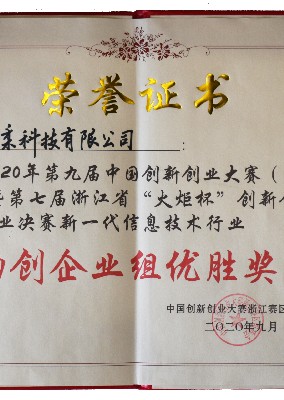 荣誉证书
科技有限公司 :
20年第九届中国创新创业大赛(
第七届浙江省“火炬杯”创新
业决赛新一代信息技术行业
创企业组优胜奖
中国创新创业大赛浙江赛区
二〇二〇年九月